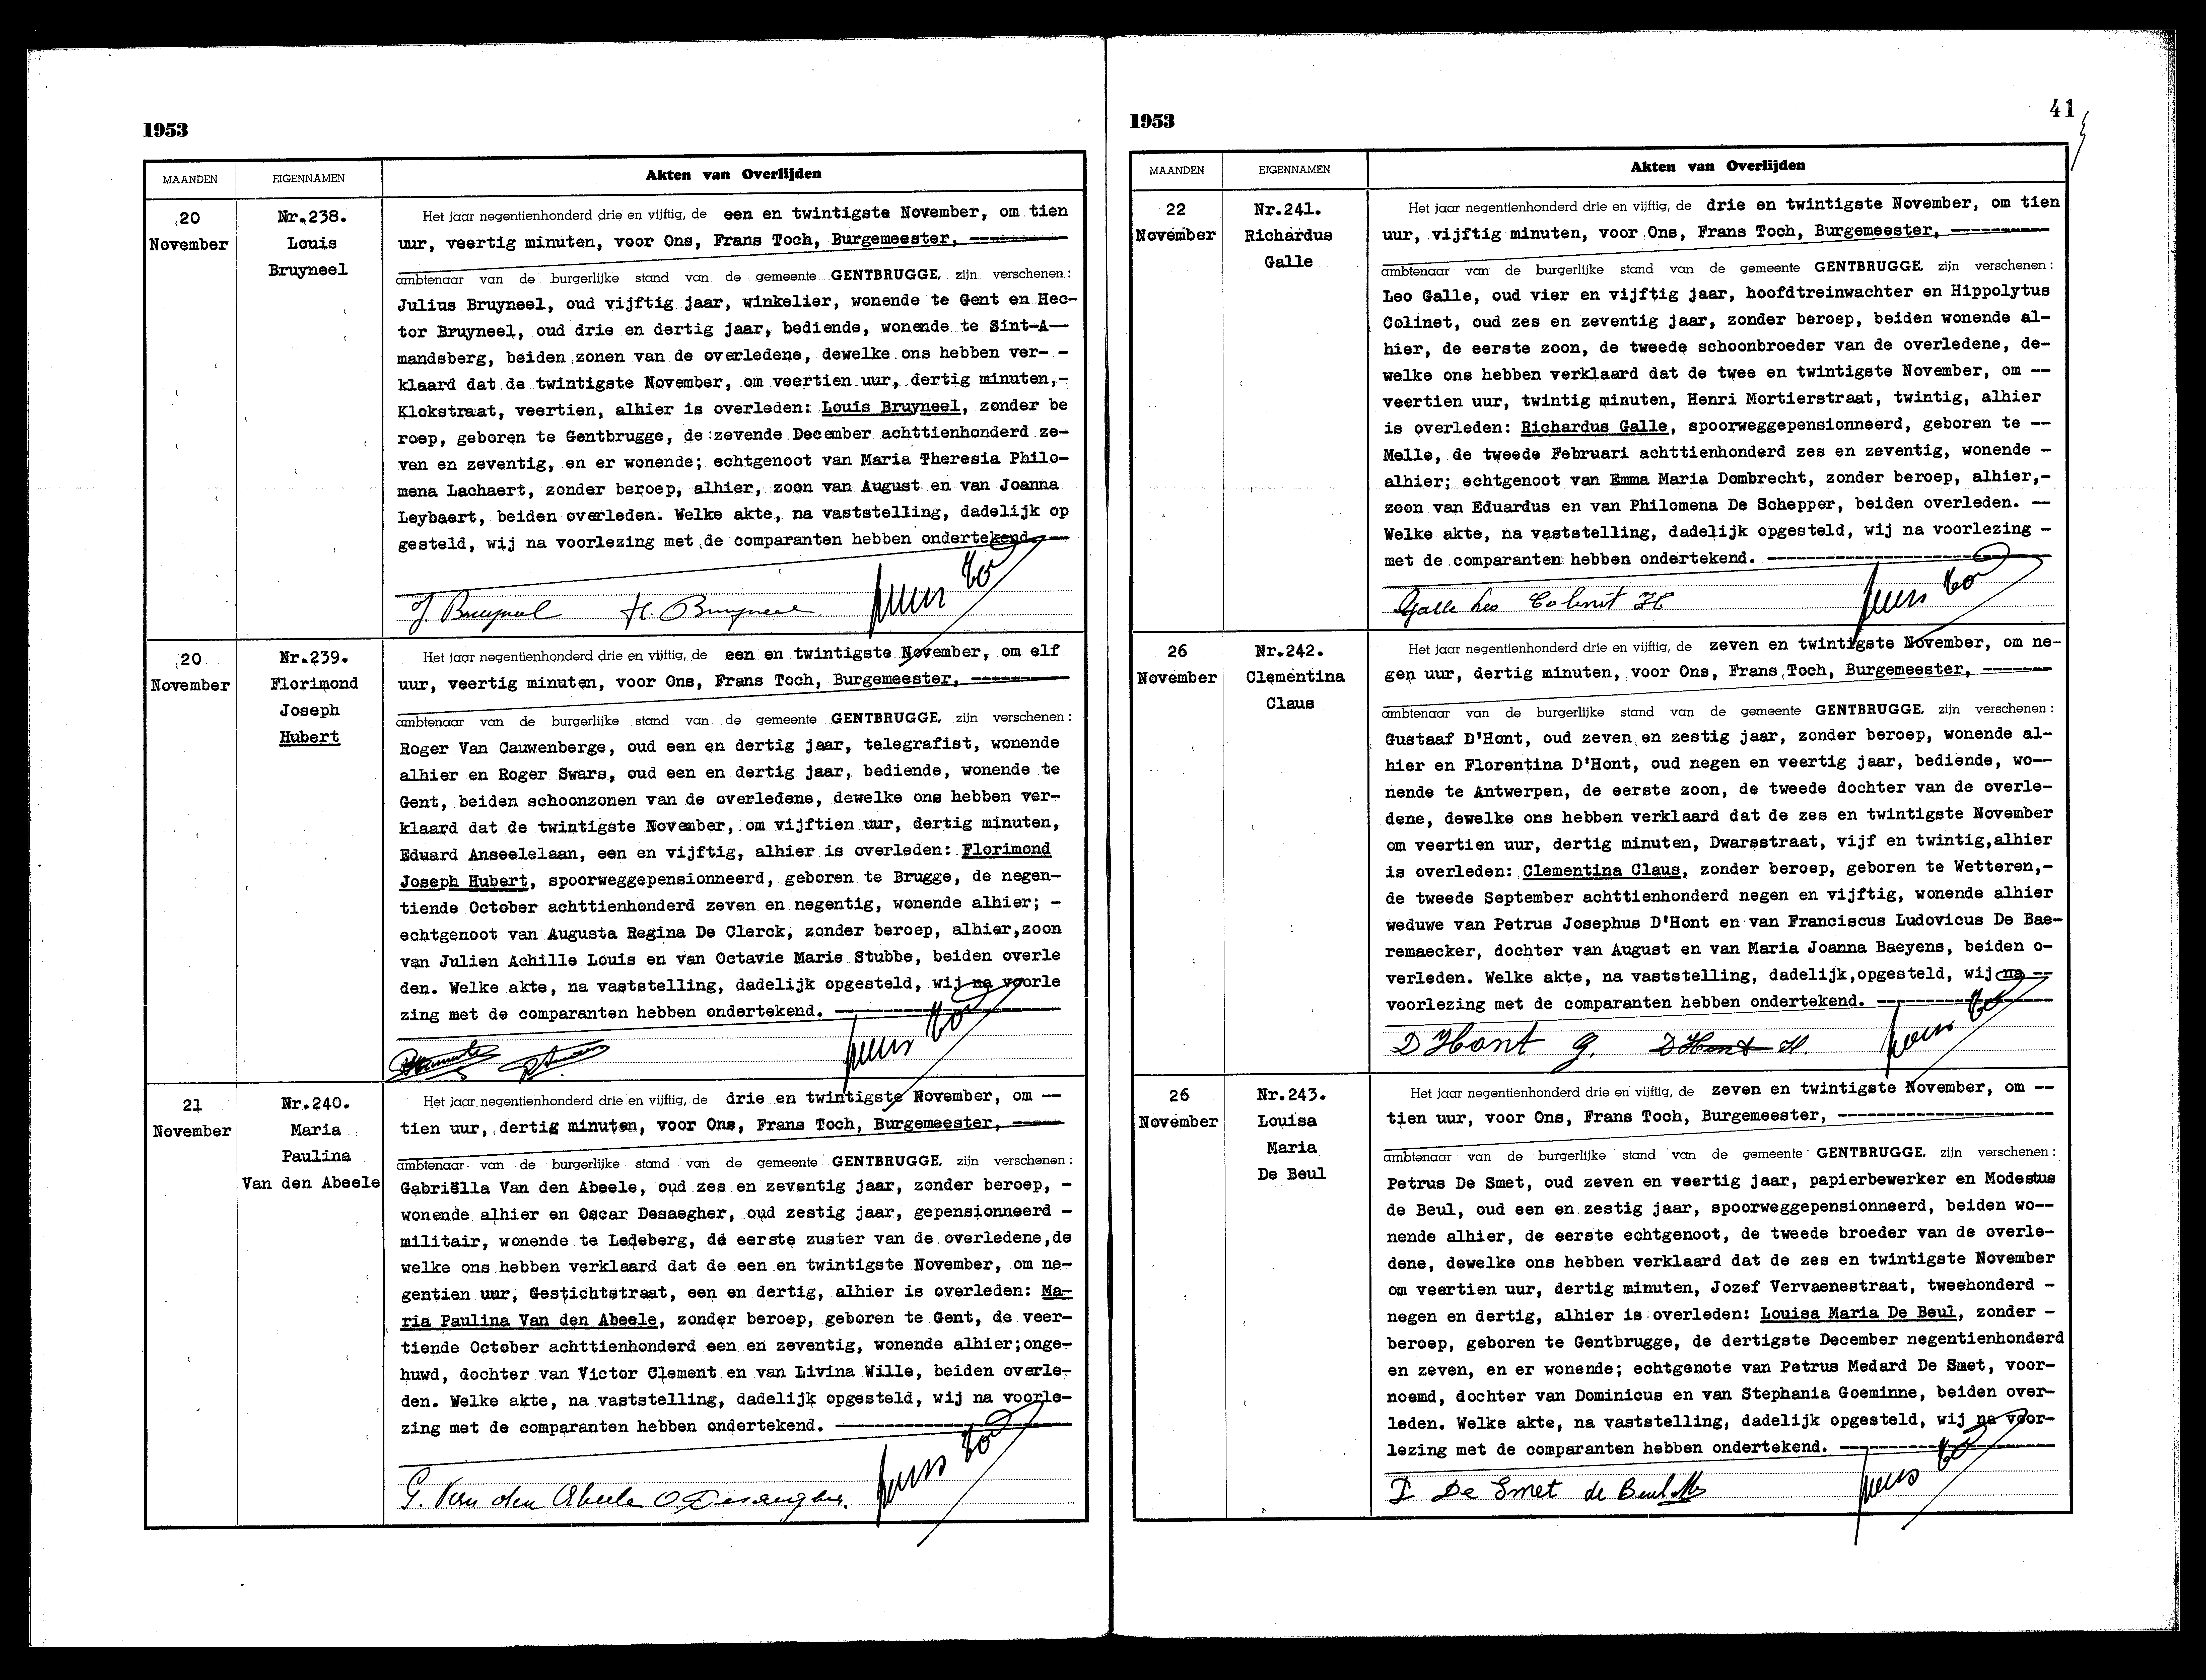 1953
MAANDEN
EIGENNAMEN
Akten van Overlijden
20
November
Nr.238.
Louis
Bruyneel
Het jaar negentienhonderd drie en vijftig, de een en twintigste November, om tien
uur, veertig minuten, voor Ons, Frans Toch, Burgemeester, ----------
ambtenaar van de burgerlijke stand van de gemeente GENTBRUGGE, zijn verschenen:
Julius Bruyneel, oud vijftig jaar, winkelier, wonende te Gent en Hec-
tor Bruyneel, oud drie en dertig jaar, bediende, wonende te Sint-A--
mandsberg, beiden zonen van de overledene, dewelke ons hebben ver- -
klaard dat de twintigste November, om veertien uur, dertig minuten,-
Klokstraat, veertien, alhier is overleden: Louis Bruyneel, zonder be
roep, geboren te Gentbrugge, de zevende December achttienhonderd ze-
ven en zeventig, en er wonende; echtgenoot van Maria Theresia Philo-
mena Lachaert, zonder beroep, alhier, zoon van August en van Joanna
Leybaert, beiden overleden. Welke akte, na vaststelling, dadelijk op
gesteld, wij na voorlezing met de comparanten hebben ondertekend.---
J. Bruyneel H. Bruyneel
20
November
Nr.239.
Florimond
Joseph
Hubert
Het jaar negentienhonderd drie en vijftig, de een en twintigste November, om elf
uur, veertig minuten, voor Ons, Frans Toch, Burgemeester, ----------
ambtenaar van de burgerlijke stand van de gemeente GENTBRUGGE, zijn verschenen:
Roger Van Cauwenberge, oud een en dertig jaar, telegrafist, wonende
alhier en Roger Swars, oud een en dertig jaar, bediende, wonende te
Gent, beiden schoonzonen van de overledene, dewelke ons hebben ver-
klaard dat de twintigste November, om vijftien uur, dertig minuten,
Eduard Anseelelaan, een en vijftig, alhier is overleden: Florimond
Joseph Hubert, spoorweggepensionneerd, geboren te Brugge, de negen-
tiende October achttienhonderd zeven en negentig, wonende alhier; -
echtgenoot van Augusta Regina De Clerck, zonder beroep, alhier,zoon
van Julien Achille Louis en van Octavie Marie Stubbe, beiden overle
den. Welke akte, na vaststelling, dadelijk opgesteld, wij na voorle
zing met de comparanten hebben ondertekend. ------------------------
21
November
Nr.240.
Maria
Paulina
Van den Abeele
Het jaar negentienhonderd drie en vijftig, de drie en twintigste November, om --
tien uur, dertig minuten, voor Ons, Frans Toch, Burgemeester, -----
ambtenaar van de burgerlijke stand van de gemeente GENTBRUGGE, zijn verschenen:
Gabriëlla Van den Abeele, oud zes en zeventig jaar, zonder beroep, -
wonende alhier en Oscar Desaegher, oud zestig jaar, gepensionneerd -
militair, wonende te Ledeberg, de eerste zuster van de overledene,de
welke ons hebben verklaard dat de een en twintigste November, om ne-
gentien uur, Gestichtstraat, een en dertig, alhier is overleden: Ma-
ria Paulina Van den Abeele, zonder beroep, geboren te Gent, de veer-
tiende October achttienhonderd een en zeventig, wonende alhier;onge-
huwd, dochter van Victor Clement en van Livina Wille, beiden overle-
den. Welke akte, na vaststelling, dadelijk opgesteld, wij na voorle-
zing met de comparanten hebben ondertekend. ------------------------
G. Van den Abeele O Desaegher.
41
1953
MAANDEN
EIGENNAMEN
Akten van Overlijden
22
November
Nr.241.
Richardus
Galle
Het jaar negentienhonderd drie en vijftig, de drie en twintigste November, om tien
uur, vijftig minuten, voor Ons, Frans Toch, Burgemeester, ----------
ambtenaar van de burgerlijke stand van de gemeente GENTBRUGGE, zijn verschenen:
Leo Galle, oud vier en vijftig jaar, hoofdtreinwachter en Hippolytus
Colinet, oud zes en zeventig jaar, zonder beroep, beiden wonende al-
hier, de eerste zoon, de tweede schoonbroeder van de overledene, de-
welke ons hebben verklaard dat de twee en twintigste November, om --
veertien uur, twintig minuten, Henri Mortierstraat, twintig, alhier
is overleden: Richardus Galle, spoorweggepensionneerd, geboren te --
Melle, de tweede Februari achttienhonderd zes en zeventig, wonende -
alhier; echtgenoot van Emma Maria Dombrecht, zonder beroep, alhier,-
zoon van Eduardus en van Philomena De Schepper, beiden overleden. --
Welke akte, na vaststelling, dadelijk opgesteld, wij na voorlezing -
met de comparanten hebben ondertekend. -----------------------------
Galle Leo Colinet H
26
November
Nr.242.
Clementina
Claus
Het jaar negentienhonderd drie en vijftig, de zeven en twintigste November, om ne-
gen uur, dertig minuten, voor Ons, Frans Toch, Burgemeester, -------
ambtenaar van de burgerlijke stand van de gemeente GENTBRUGGE, zijn verschenen:
Gustaaf D'Hont, oud zeven en zestig jaar, zonder beroep, wonende al-
hier en Florentina D'Hont, oud negen en veertig jaar, bediende, wo--
nende te Antwerpen, de eerste zoon, de tweede dochter van de overle-
dene, dewelke ons hebben verklaard dat de zes en twintigste November
om veertien uur, dertig minuten, Dwarsstraat, vijf en twintig,alhier
is overleden: Clementina Claus, zonder beroep, geboren te Wetteren,-
de tweede September achttienhonderd negen en vijftig, wonende alhier
weduwe van Petrus Josephus D'Hont en van Franciscus Ludovicus De Bae-
remaecker, dochter van August en van Maria Joanna Baeyens, beiden o-
verleden. Welke akte, na vaststelling, dadelijk,opgesteld, wij na --
voorlezing met de comparanten hebben ondertekend. ------------------
D'Hont G. D'Hont
26
November
Nr.243.
Louisa
Maria
De Beul
Het jaar negentienhonderd drie en vijftig, de zeven en twintigste November, om --
tien uur, voor Ons, Frans Toch, Burgemeester, ----------------------
ambtenaar van de burgerlijke stand van de gemeente GENTBRUGGE, zijn verschenen:
Petrus De Smet, oud zeven en veertig jaar, papierbewerker en Modestus
de Beul, oud een en zestig jaar, spoorweggepensionneerd, beiden wo--
nende alhier, de eerste echtgenoot, de tweede broeder van de overle-
dene, dewelke ons hebben verklaard dat de zes en twintigste November
om veertien uur, dertig minuten, Jozef Vervaenestraat, tweehonderd -
negen en dertig, alhier is overleden: Louisa Maria De Beul, zonder -
beroep, geboren te Gentbrugge, de dertigste December negentienhonderd
en zeven, en er wonende; echtgenote van Petrus Medard De Smet, voor-
noemd, dochter van Dominicus en van Stephania Goeminne, beiden over-
leden. Welke akte, na vaststelling, dadelijk opgesteld, wij na voor-
lezing met de comparanten hebben ondertekend. ----------------------
P De Smet de Beul M